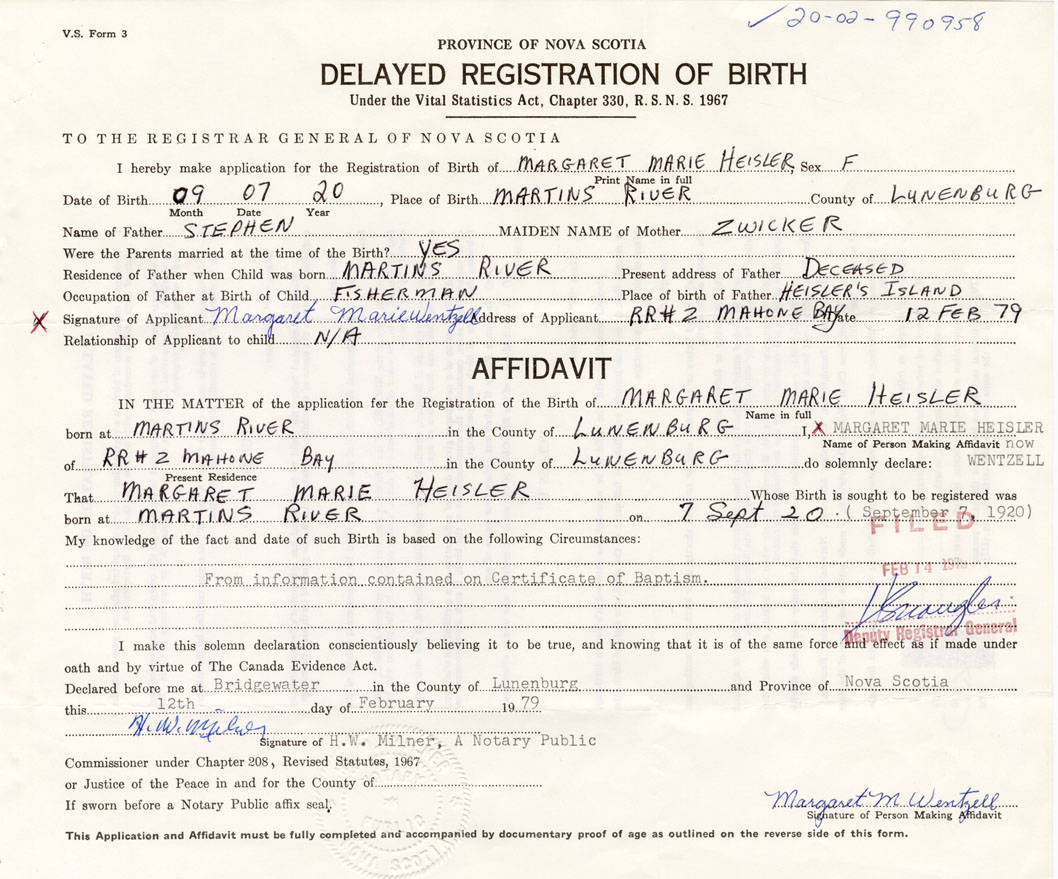 ✓20-02-990958
V.S. Form 3
PROVINCE OF NOVA SCOTIA
DELAYED REGISTRATION OF BIRTH
Under the Vital Statistics Act, Chapter 330, R. S. N. S. 1967
TO THE REGISTRAR GENERAL OF NOVA SCOTIA
I hereby make application for the Registration of Birth of MARGARET MARIE HEISLER, Sex F
Print Name in full
Date of Birth 09 07 20, Place of Birth MARTINS RIVER County of LUNENBURG
Month Date Year
Name of Father STEPHEN MAIDEN NAME of Mother ZWICKER
Were the Parents married at the time of the Birth? YES
Residence of Father when Child was born MARTINS RIVER Present address of Father DECEASED
Occupation of Father at Birth of Child FISHERMAN Place of birth of Father HEISLER'S ISLAND
X Signature of Applicant Margaret Marie Wentzell Address of Applicant RR#2 MAHONE BAY Date 12 FEB 79
Relationship of Applicant to child N/A
AFFIDAVIT
IN THE MATTER of the application for the Registration of the Birth of MARGARET MARIE HEISLER
Name in full
born at MARTINS RIVER in the County of LUNENBURG I, X MARGARET MARIE HEISLER
Name of Person Making Affidavit now
of RR#2 MAHONE BAY in the County of LUNENBURG do solemnly declare: WENTZELL
Present Residence
That MARGARET MARIE HEISLER Whose Birth is sought to be registered was
born at MARTINS RIVER on 7 Sept 20 . (September 7, 1920)
FILED
My knowledge of the fact and date of such Birth is based on the following Circumstances:
FEB 14
From information contained on Certificate of Baptism.
Deputy Registrar General
I make this solemn declaration conscientiously believing it to be true, and knowing that it is of the same force and effect as if made under
oath and by virtue of The Canada Evidence Act.
Declared before me at Bridgewater in the County of Lunenburg and Province of Nova Scotia
this 12th day of February 1979
H.W. Milner
Signature of H.W. Milner, A Notary Public
Commissioner under Chapter 208, Revised Statutes, 1967
or Justice of the Peace in and for the County of
If sworn before a Notary Public affix seal.
Margaret M Wentzell
Signature of Person Making Affidavit
This Application and Affidavit must be fully completed and accompanied by documentary proof of age as outlined on the reverse side of this form.
PUBLIC
NOVA SCOTIA